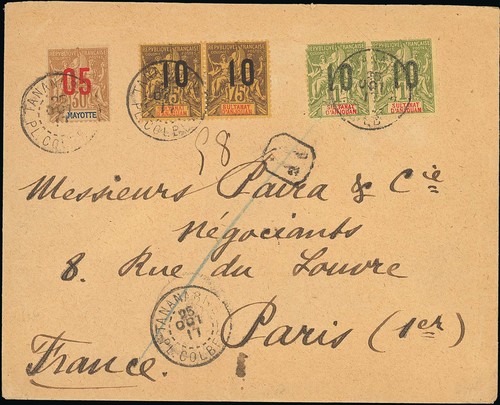 RÉPUBLIQUE FRANÇAISE
05
30
MAYOTTE
RÉPUBLIQUE FRANÇAISE
10
75
SULTANAT D'ANJOUAN
RÉPUBLIQUE FRANÇAISE
10
75
SULTANAT D'ANJOUAN
RÉPUBLIQUE FRANÇAISE
10
SULTANAT D'ANJOUAN
RÉPUBLIQUE FRANÇAISE
10
SULTANAT D'ANJOUAN
TANANARIVE
PL. COLBERT
58
R
Messieurs Paira & Cie
Négociants
8. Rue du Louvre
Paris (1er)
France.
TANANARIVE
25
OCT
17
PL. COLBERT